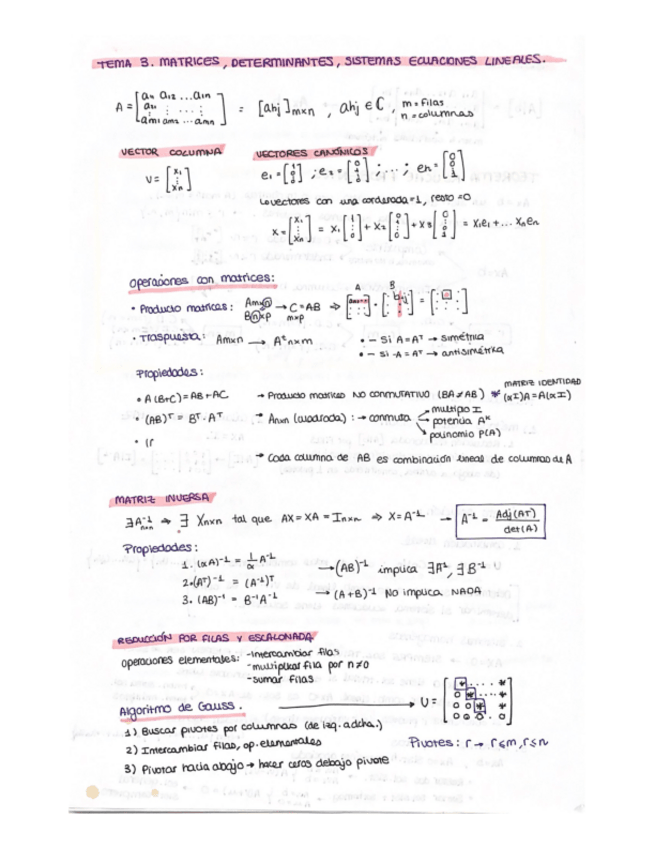 TEMA 3. MATRICES, DETERMINANTES, SISTEMAS ECUACIONES LINEALES.
A = [a11 a12 ... a1n; a21 ...; am1 am2 ... amn] = [ahj]m×n , ahj ∈ C , m = filas
n = columnas
VECTOR COLUMNA
V = [x1 ⋮ xn]
VECTORES CANÓNICOS
e1 = [1 0 ⋮ 0] ; e2 = [0 1 ⋮ 0] ; ... ; en = [0 0 ⋮ 1]
↳ vectores con una cordenada = 1, resto = 0
X = [x1 ⋮ xn] = x1 [1 ⋮ 0] + x2 [0 1 ⋮ 0] + x3 [0 ⋮ 0 1] = x1e1 + ... xnen
Operaciones con matrices:
• Producto matrices: Am×n Bn×p → C = AB m×p ⇒ A B
• Traspuesta: Am×n → At n×m
• — Si A = AT → simétrica
• — Si -A = AT → antisimétrika
Propiedades:
• A(B+C) = AB + AC
• (AB)T = BT · AT
• (r
→ Producto matrices NO conmutativo (BA ≠ AB) * MATRIZ IDENTIDAD (αI)A = A(αI)
→ An×n (cuadrada) : → conmuta
multiplo I
potencia AK
polinomio P(A)
→ Cada columna de AB es combinación lineal de columnas de A
MATRIZ INVERSA
∃A-1 n×n ⇒ ∃ Xn×n tal que AX = XA = In×n ⇒ X = A-1 → A-1 = Adj(AT) / det(A)
Propiedades:
1. (αA)-1 = 1/α A-1
2. (AT)-1 = (A-1)T
3. (AB)-1 = B-1A-1
→ (AB)-1 implica ∃A-1, ∃B-1
→ (A+B)-1 No implica NADA
REDUCCIÓN POR FILAS Y ESCALONADA
Operaciones elementales: -intercambiar filas
-multiplicar fila por n≠0
-sumar filas
Algoritmo de Gauss. → U = [* .... *; 0 * .. *; 0 0 * *; 0 0 0 0]
1) Buscar pivotes por columnas (de izq. a dcha.)
2) Intercambiar filas, op. elementales
3) Pivotar hacia abajo → hacer ceros debajo pivote
Pivotes: r → r≤m, r≤n